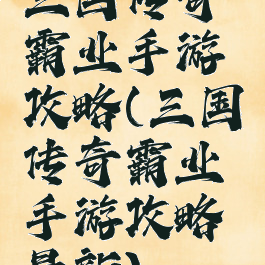 三国传奇
霸业手游
攻略(三国
传奇霸业
手游攻略
最新)